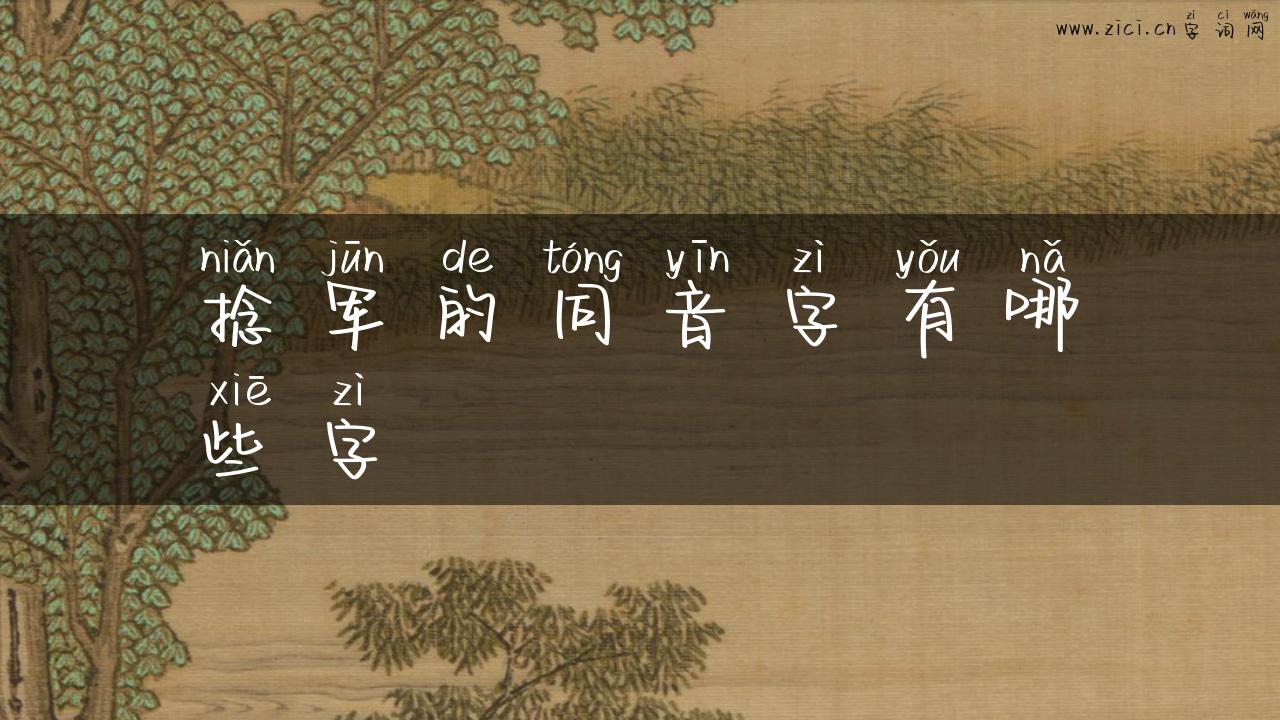 zì cí wǎng
www.zici.cn字词网
niǎn jūn de tóng yīn zì yǒu nǎ
捻军的同音字有哪
xiē zì
些字